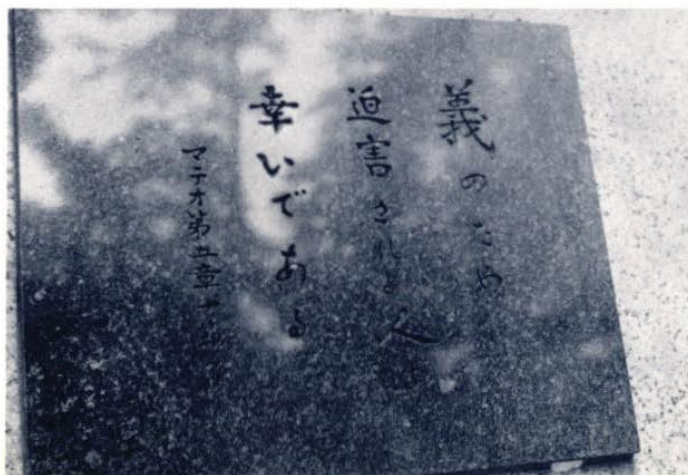 義のため
迫害される人は
幸いである
マテオ第五章一